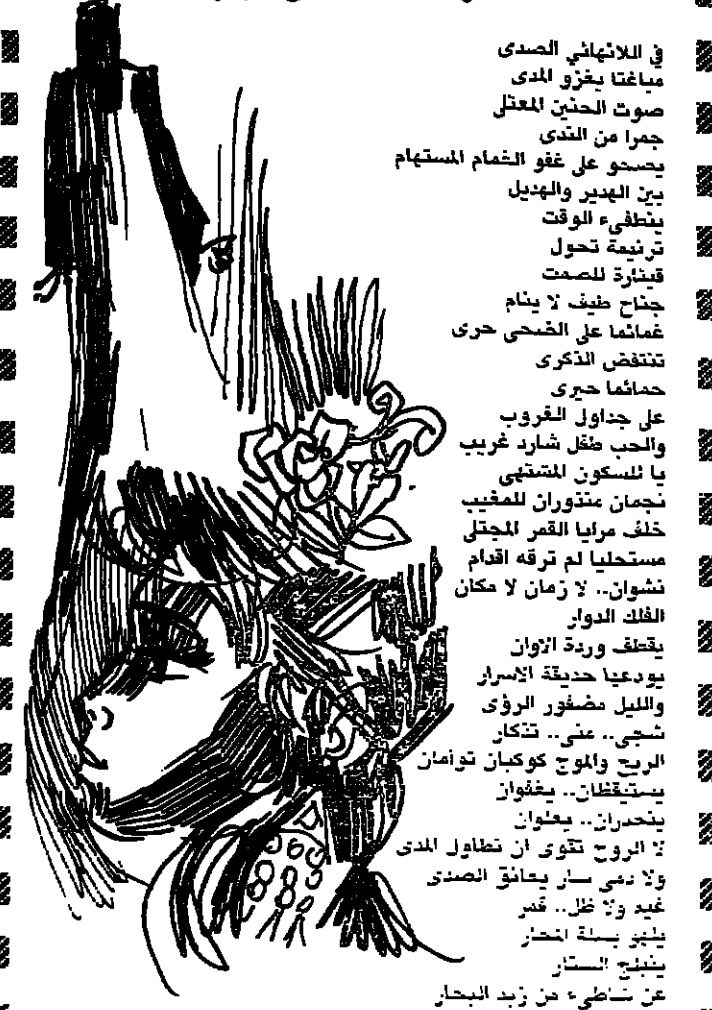 في اللانهائي الصدى
مباغتا يغزو المدى
صوت الحنين المعتلى
جمرا من الندى
يصحو على غفو الغمام المستهام
بين الهدير والهديل
ينطفىء الوقت
ترنيمة تحول
قيثارة للصمت
جناح طيف لا ينام
غمائما على الضحى حرى
تنتفض الذكرى
حمائما حيرى
على جداول الغروب
والحب طفل شارد غريب
يا للسكون المشتهى
نجمان منذوران للمغيب
خلف مرايا القمر المجتلى
مستحليا لم ترقه اقدام
نشوان.. لا زمان لا مكان
الفلك الدوار
يقطف وردة الاوان
يودعها حديقة الاسرار
والليل مضفور الرؤى
شجى.. عنى.. تذكار
الريح والموج كوكبان توأمان
يستيقظان.. يغفوان
ينحدران.. يعلوان
لا الروح تقوى ان تطاول المدى
ولا دمى سار يعانق الصدى
غيد ولا ظل.. قمر
يلهو بسلة المحار
ينبلج الستار
عن شاطىء من زبد البحار